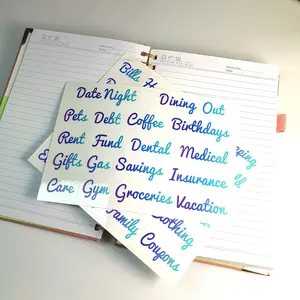 Bills
Date Night Dining Out
Pets Debt Coffee Birthdays
Rent Fund Dental Medical
Gifts Gas Savings Insurance
Care Gym Groceries Vacation
Family
Coupons